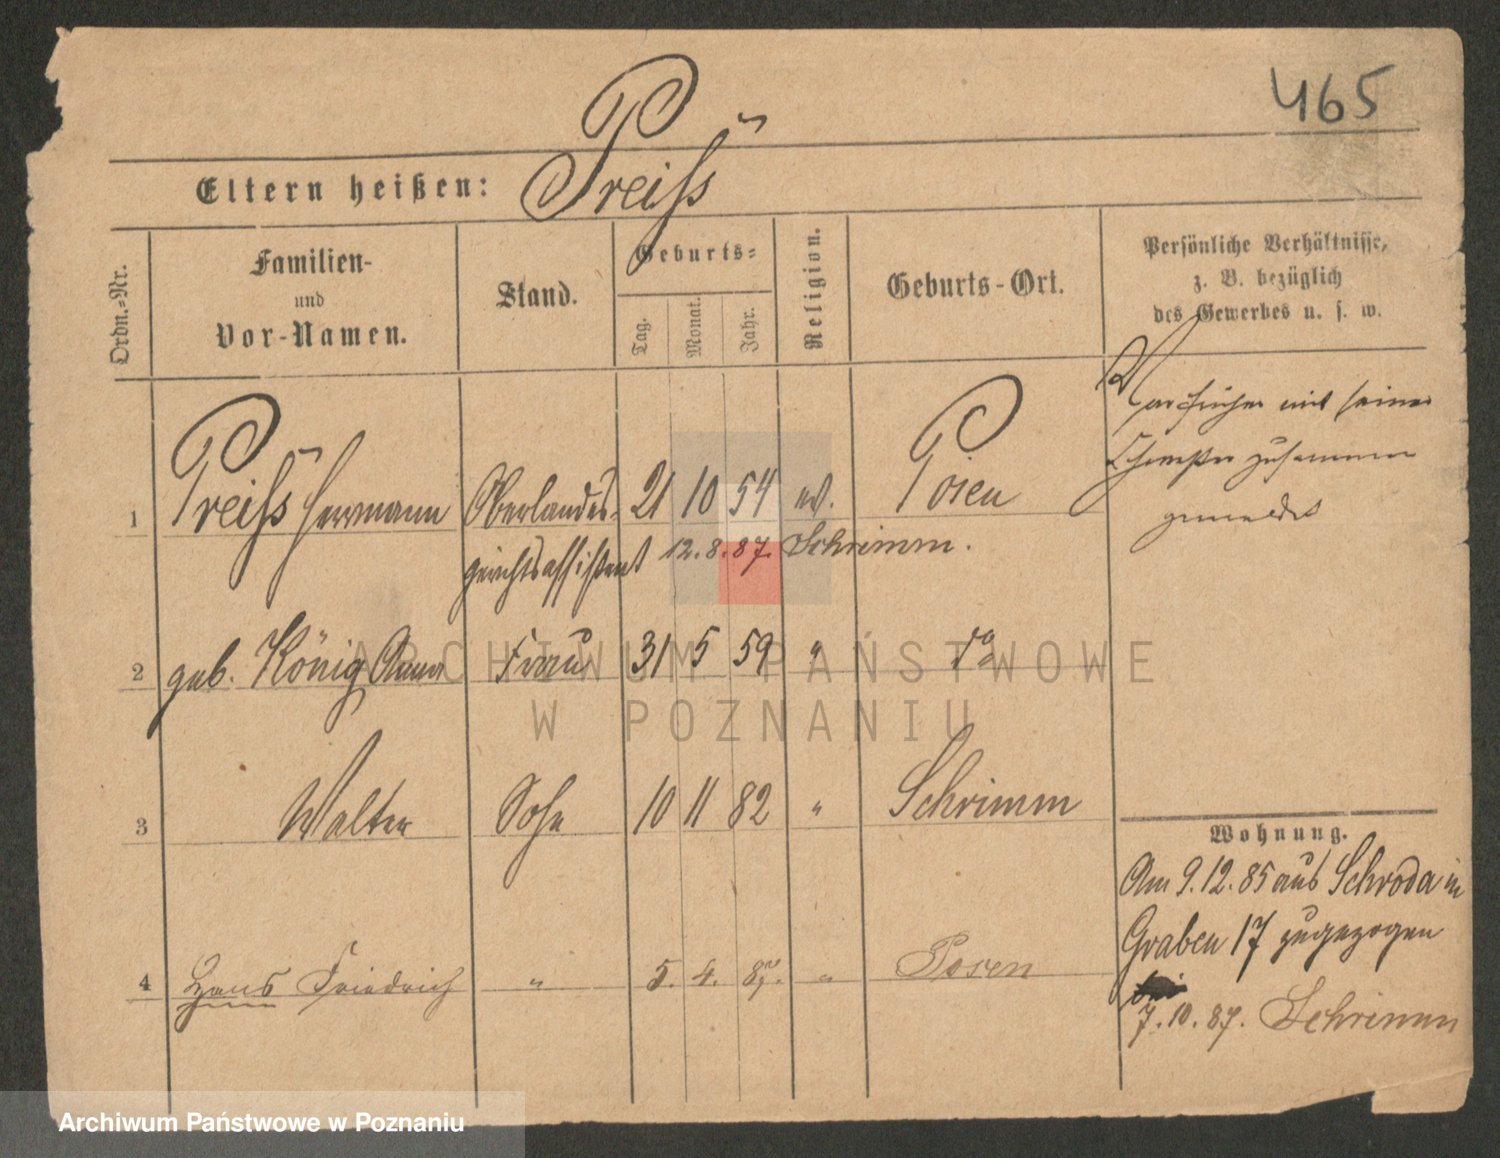 465
Eltern heißen: Preiß
Ordn.-Nr.
Familien-
und
Vor-Namen.
Stand.
Geburts-
Tag. Monat. Jahr.
Religion.
Geburts-Ort.
Persönliche Verhältnisse,
z. B. bezüglich
des Gewerbes u. s. w.
War früher mit seiner
Schwester zusammen
gemeldet
1 Preiß Hermann Oberlandes- 21 10 54 ev. Posen
gerichtsassistent 12.8.87. Schrimm.
2 geb. König Anna Frau 31 5 59 " do
3 Walter Sohn 10 11 82 " Schrimm
Wohnung.
Am 9.12.85 aus Schroda in
Graben 17 zugezogen
7.10.87. Schrimm
4 Hans Friedrich " 5. 4. 87. " Posen
ARCHIWUM PAŃSTWOWE
W POZNANIU
Archiwum Państwowe w Poznaniu